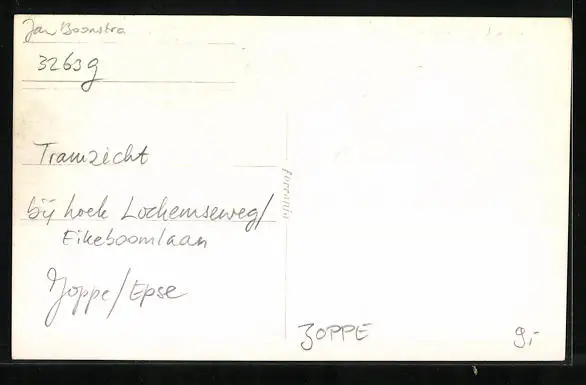 Jan Boonstra
3263g
Tramzicht
bij hoek Lochemseweg/
Eikeboomlaan
Joppe/Epse
ferrania
JOPPE
9,-